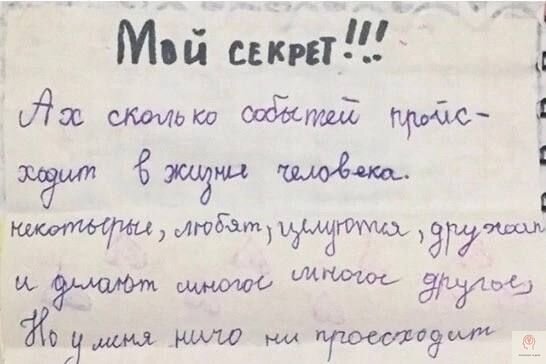 Мой секрет!!!
Ах сколько событей пройис-
ходит в жизне человека.
некотьерые, любят, целуются, дружат
и делают многое многое другое,
Но у меня ничо ни проесходит